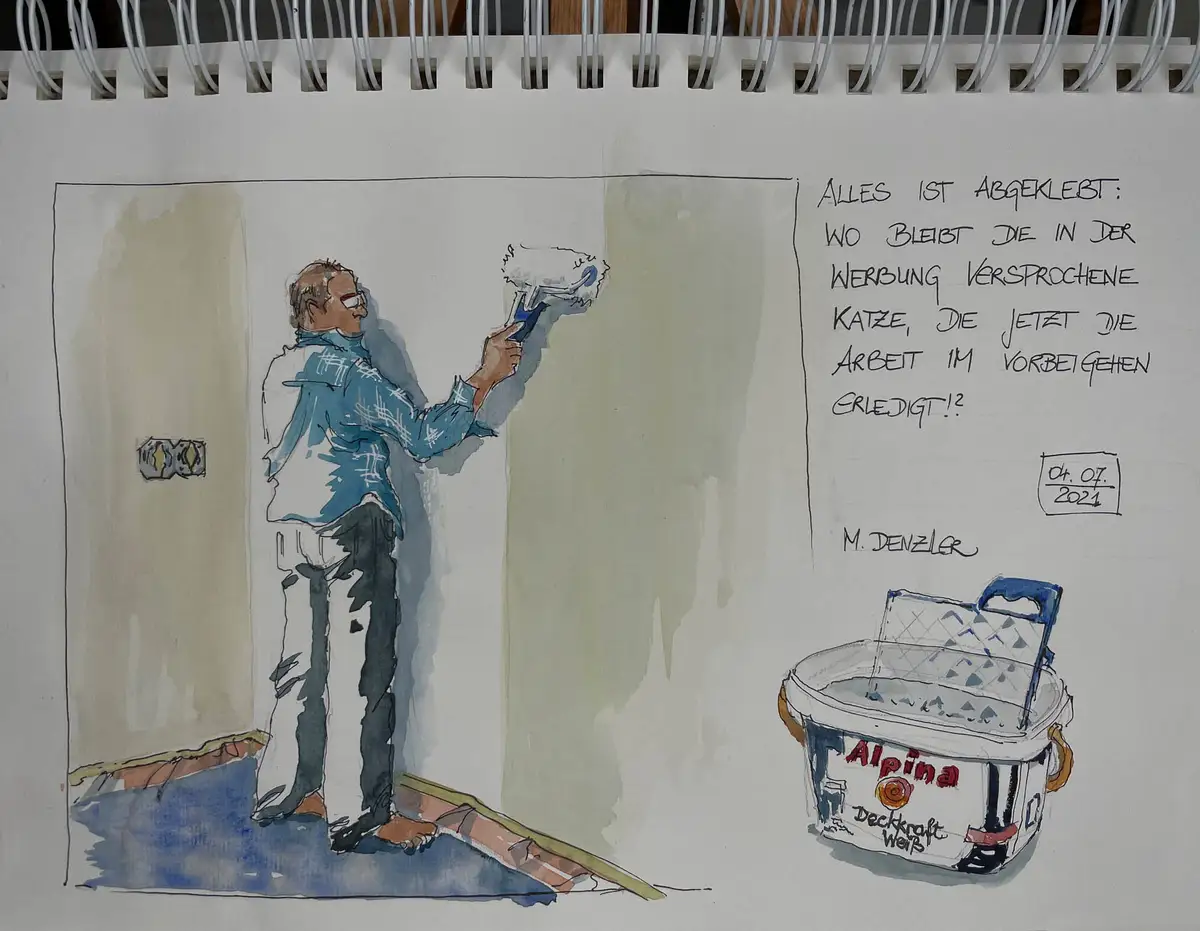 ALLES IST ABGEKLEBT:
WO BLEIBT DIE IN DER
WERBUNG VERSPROCHENE
KATZE, DIE JETZT DIE
ARBEIT IM VORBEIGEHEN
ERLEDIGT!?
04.07.
2021
M. DENZLER
Alpina
Deckkraft
Weiß